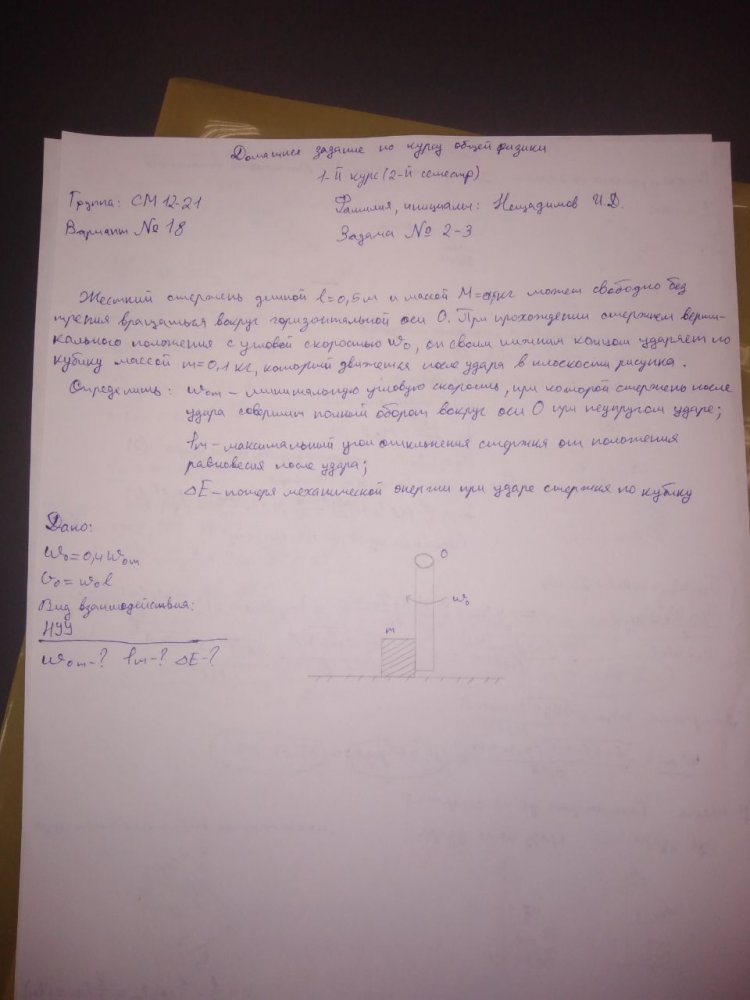 Домашнее задание по курсу общей физики
1-й курс (2-й семестр)
Группа: СМ 12-21 Фамилия, инициалы: Нещадимов И.Д.
Вариант № 18 Задача № 2-3
Жесткий стержень длиной l=0,5м и массой M= может свободно без
трения вращаться вокруг горизонтальной оси О. При прохождении стержнем верти-
кального положения с угловой скоростью ω₀, он своим нижним концом ударяет по
кубику массой m=0,1 кг, который движется после удара в плоскости рисунка.
Определить: ω₀m – минимальную угловую скорость, при которой стержень после
удара совершит полный оборот вокруг оси О при неупругом ударе;
– максимальный угол отклонения стержня от положения
равновесия после удара;
ΔE – потеря механической энергии при ударе стержня по кубику
Дано:
ω₀=0,4ω₀m
υ₀=ω₀l
Вид взаимодействия:
НУУ
ω₀m-? ΔE-?
O
ω₀
m